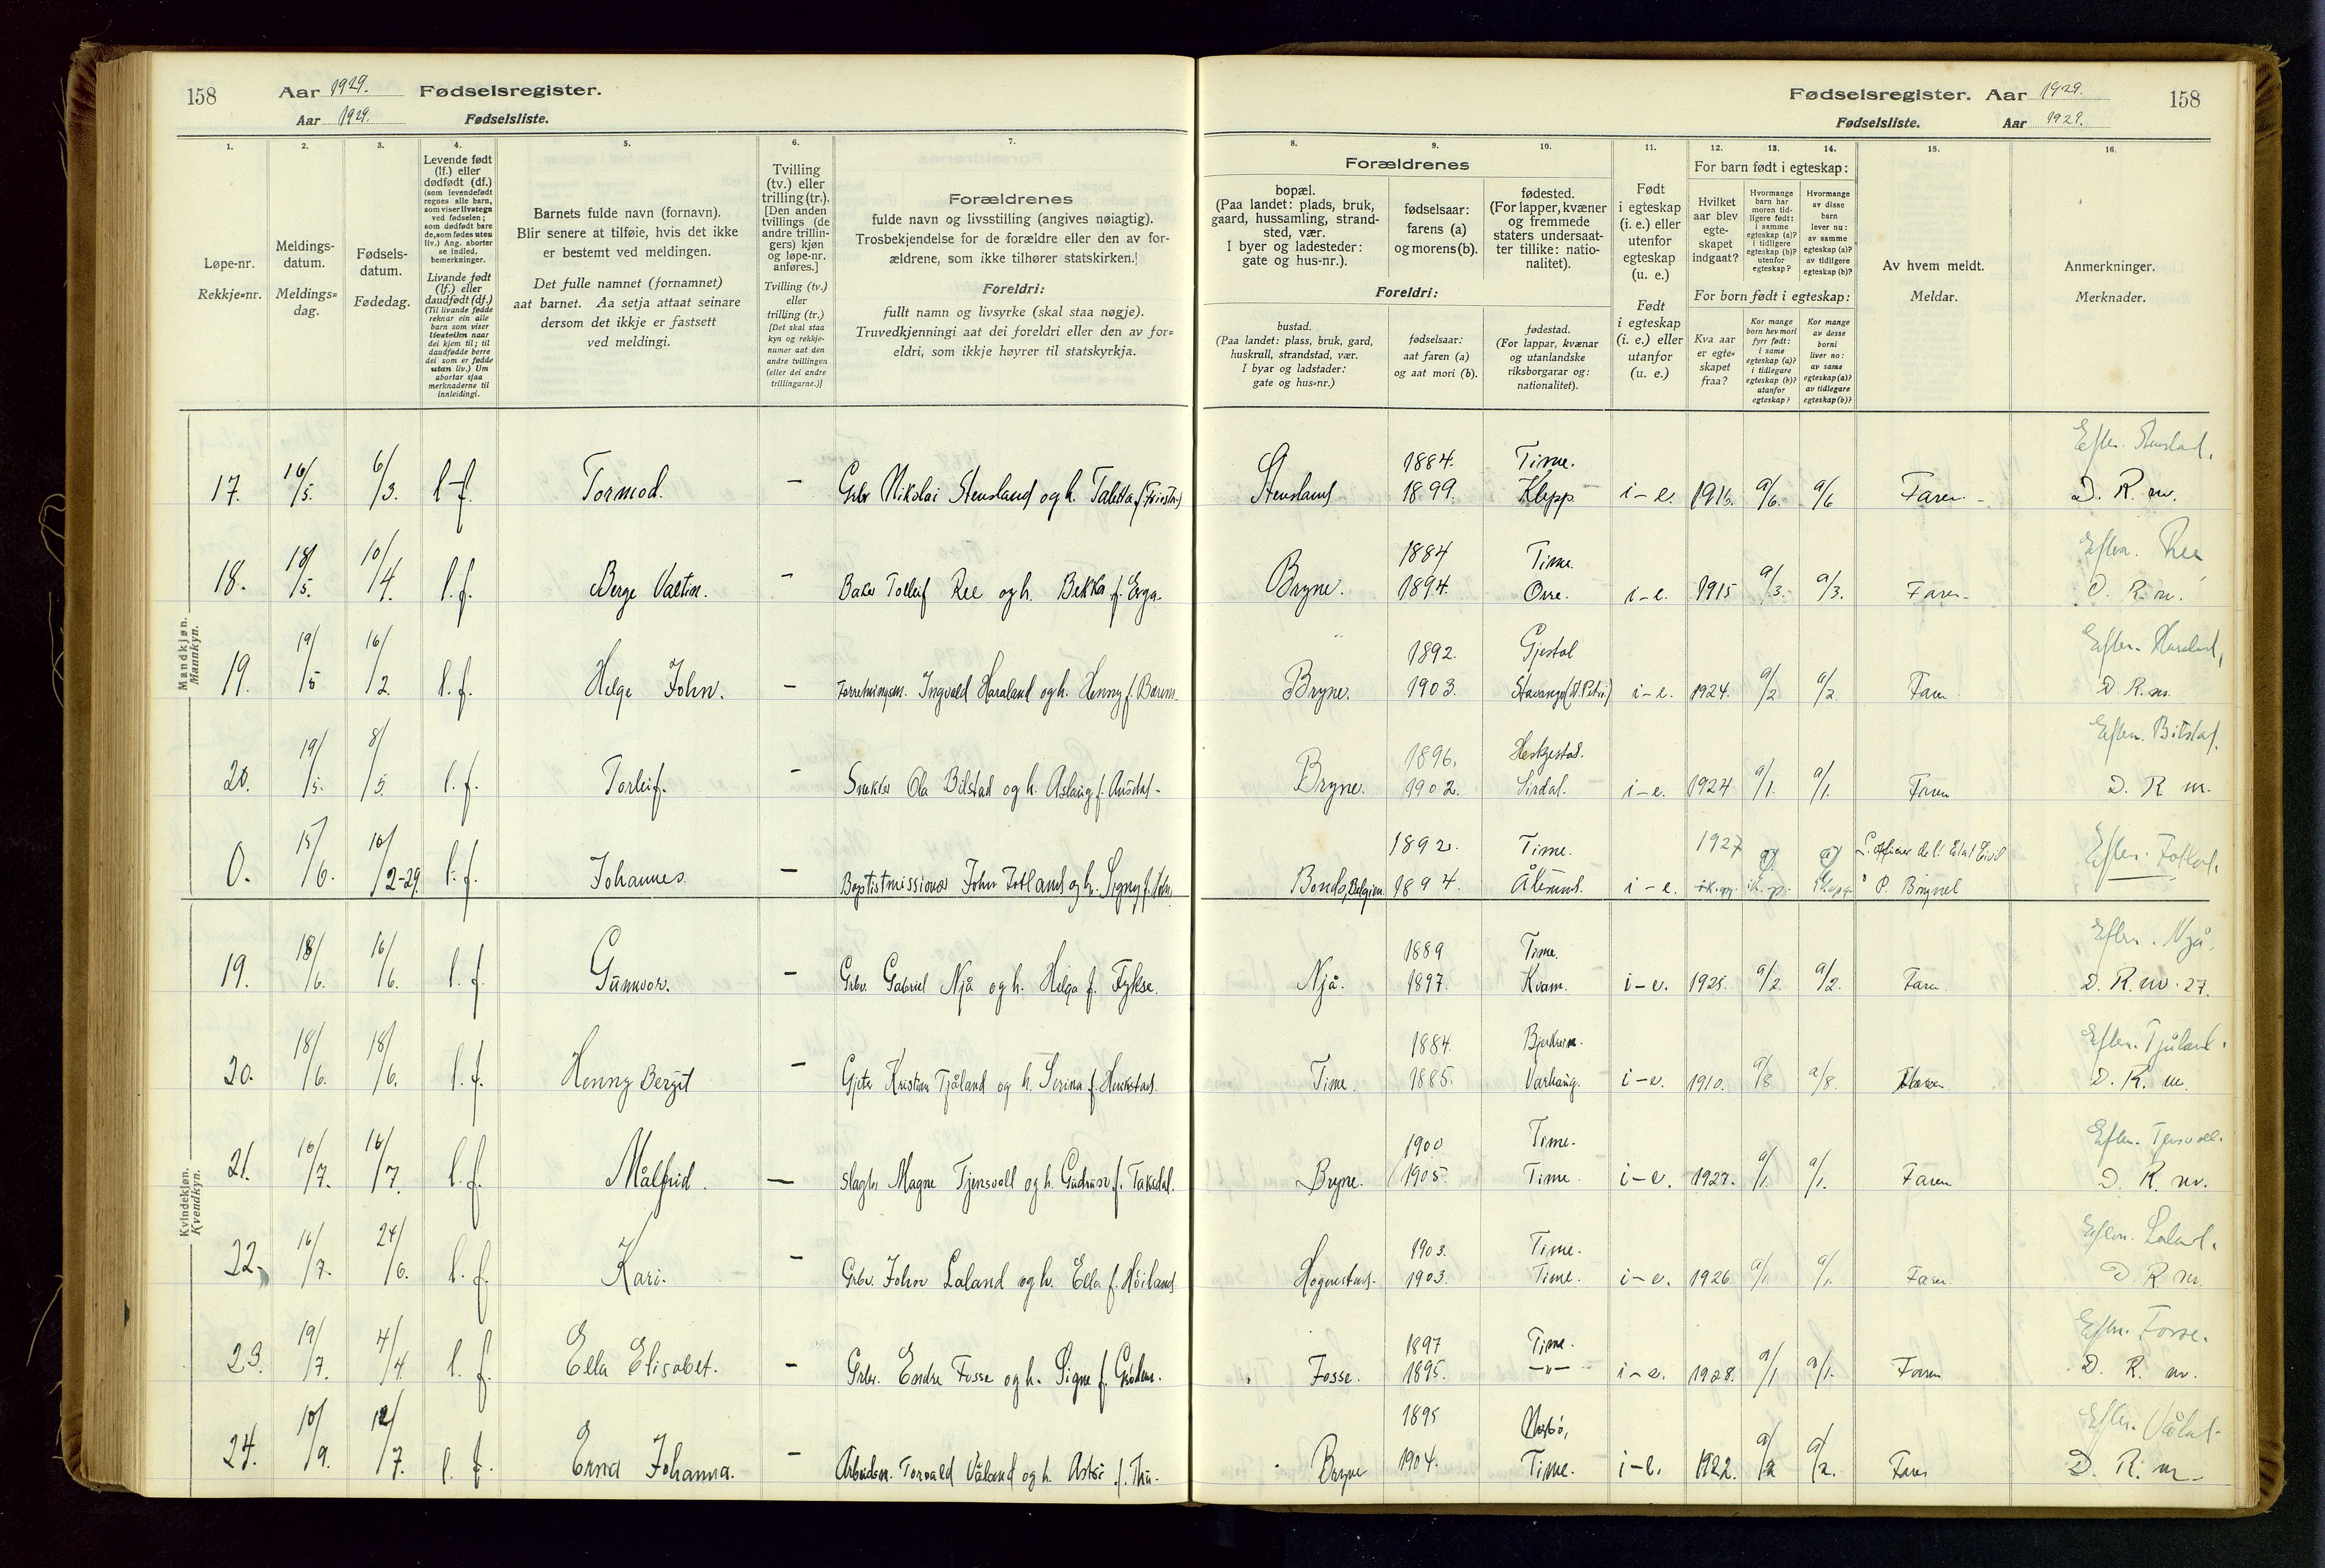 158 Aar 1929. Fødselsregister.
Aar 1929. Fødselsliste.
Fødselsregister. Aar 1929. 158
Fødselsliste. Aar 1929.
1. 2. 3. 4. 5. 6. 7. 8. 9. 10. 11. 12. 13. 14. 15. 16.
Løpe-nr.
Rekkje=nr.
Meldings-
datum.
Meldings=
dag.
Fødsels-
datum.
Fødedag.
Levende født
(lf.) eller
dødfødt (df.)
(som levendefødt
regnes alle barn,
som viser livstegn
ved fødselen;
som dødfødt bare
de, som fødes uten
liv.) Ang. aborter
se indled.
bemerkninger.
Livande født
(lf.) eller
daudfødt (df.)
(Til livande fødde
reknar ein alle
barn som viser
livsteikn naar
dei kjem til; til
daudfødde berre
dei som er fødde
utan liv.) Um
abortar sjaa
merknaderne til
innleidingi.
Barnets fulde navn (fornavn).
Blir senere at tilføie, hvis det ikke
er bestemt ved meldingen.
Det fulle namnet (fornamnet)
aat barnet. Aa setja attaat seinare
dersom det ikkje er fastsett
ved meldingi.
Tvilling
(tv.) eller
trilling (tr.).
[Den anden
tvillings (de
andre trillin-
gers) kjøn
og løpe-nr.
anføres.]
Tvilling (tv.)
eller
trilling (tr.)
[Det skal staa
kyn og rekkje-
numer aat den
andre tvillingen
(eller dei andre
trillingarne.)]
Forældrenes
fulde navn og livsstilling (angives nøiagtig).
Trosbekjendelse for de forældre eller den av for-
ældrene, som ikke tilhører statskirken.]
Foreldri:
fullt namn og livsyrke (skal staa nøgje).
Truvedkjenningi aat dei foreldri eller den av for=
eldri, som ikkje høyrer til statskyrkja.
Forældrenes
bopæl.
(Paa landet: plads, bruk,
gaard, hussamling, strand-
sted, vær.
I byer og ladesteder:
gate og hus-nr.).
fødselsaar:
farens (a)
og morens (b).
fødested.
(For lapper, kvæner
og fremmede
staters undersaat-
ter tillike: natio-
nalitet).
Foreldri:
bustad.
(Paa landet: plass, bruk, gard,
huskrull, strandstad, vær.
I byar og ladstader:
gate og hus=nr.)
fødselsaar:
aat faren (a)
og aat mori (b).
fødestad.
(For lappar, kvænar
og utanlandske
riksborgarar og:
nationalitet).
Født
i egteskap
(i. e.) eller
utenfor
egteskap
(u. e.)
Født
i egteskap
(i. e.) eller
utanfor
(u. e.)
For barn født i egteskap:
Hvilket
aar blev
egte-
skapet
indgaat?
Hvormange
barn har
moren tid-
ligere født:
i samme
egteskap (a)?
i tidligere
egteskap (b)?
utenfor
egteskap?
Hvormange
av disse
barn
lever nu:
av samme
egteskap (a)?
av tidligere
egteskap (b)?
For born født i egteskap:
Kva aar
er egte=
skapet
fraa?
Kor mange
born hev mori
fyrr født:
i same
egteskap (a)?
i tidlegare
egteskap (b)?
utanfor
egteskap?
Kor mange
av desse
borni
liver no:
av same
egteskap (a)?
av tidlegare
egteskap (b)?
Av hvem meldt.
Meldar.
Anmerkninger.
Merknader.
Mandkjøn.
Mannkyn.
17. 16/5. 6/3. l.f. Tormod. - Grbr Nikolai Stensland og h. Taletta f. Stensland 1884. 1899. Time. Klepp i-e. 1916. a/6. a/6 Faren D. R. m.
18. 18/5. 10/4. l.f. Berge Valtin. - Baker Tolleif Ree og h. Bekka f. Erga. Bryne. 1884 1894. Time. Orre. i-e. 1915 a/3. a/3. Faren Eftn. Ree D. R. m.
19. 19/5 16/2. l.f. Helge John. - Forretningsm. Ingvald Haraland og h. Henny f. Bryne. 1892. 1903. Gjestal Stavanger (St. Petri) i-e. 1924. a/2 a/2. Faren Eftn. Haraland, D. R. m.
20. 19/5. 8/5. l.f. Torleif. - Snekker Ola Bilstad og h. Aslaug f. Bryne. 1896. 1902. Heskjestad. Sirdal. i-e. 1924 a/1. a/1. Faren Eftn. Bilstad. D. R. m.
0. 15/6. 10/2-29 l.f. Johannes. - Baptistmissionær John Fotland og h. Signy f. Belgien 1892. 1894. Time. Ålesund. i-e. 1927 L. officier de l'Etat Civil Eftn. Fotland.
Kvindekjøn.
Kvendkyn.
19. 18/6. 16/6. l.f. Gunnvor. - Grbr. Gabriel Njå og h. Helga f. Fykse. Njå. 1889 1897. Time. Kvam. i-e. 1925. a/2 a/2. Faren Eftn. Njå. D. R. m. 27.
20. 18/6. 18/6. l.f. Henny Bergit - Gjeter Kristian Tjåland og h. Serina f. Time. 1884. 1885. Bjerkreim. Varhaug. i-e. 1910. a/8 a/8. Faren Eftn. Tjåland. D. R. m.
21. 16/7. 16/7. l.f. Målfrid. - Slagter Magne Tjensvoll og h. Gudrun f. Taksdal. Bryne. 1900 1905. Time. Time. i-e. 1927. a/1. a/1. Faren Eftn. Tjensvoll. D. R. m.
22. 16/7. 24/6. l.f. Kari. - Grbr. John Laland og h. Ella f. Høiland Hognestad. 1903. 1903. Time. Time. i-e. 1926 a/1. a/1. Faren Eftn. Laland. D. R. m.
23. 19/7. 4/4. l.f. Ella Elisabet. - Grbr. Endre Fosse og h. Signe f. Fosse. 1897 1895. Time. -"- i-e. 1928. a/1 a/1. Faren Eftn. Fosse. D. R. m.
24. 10/9. 12/7. l.f. Erna Johanna. - Arbeidsm. Torvald Våland og h. Astri f. Thu. Bryne 1895 1904. Time. i-e. 1922. a/2 a/2. Faren Eftn. Våland D. R. m.